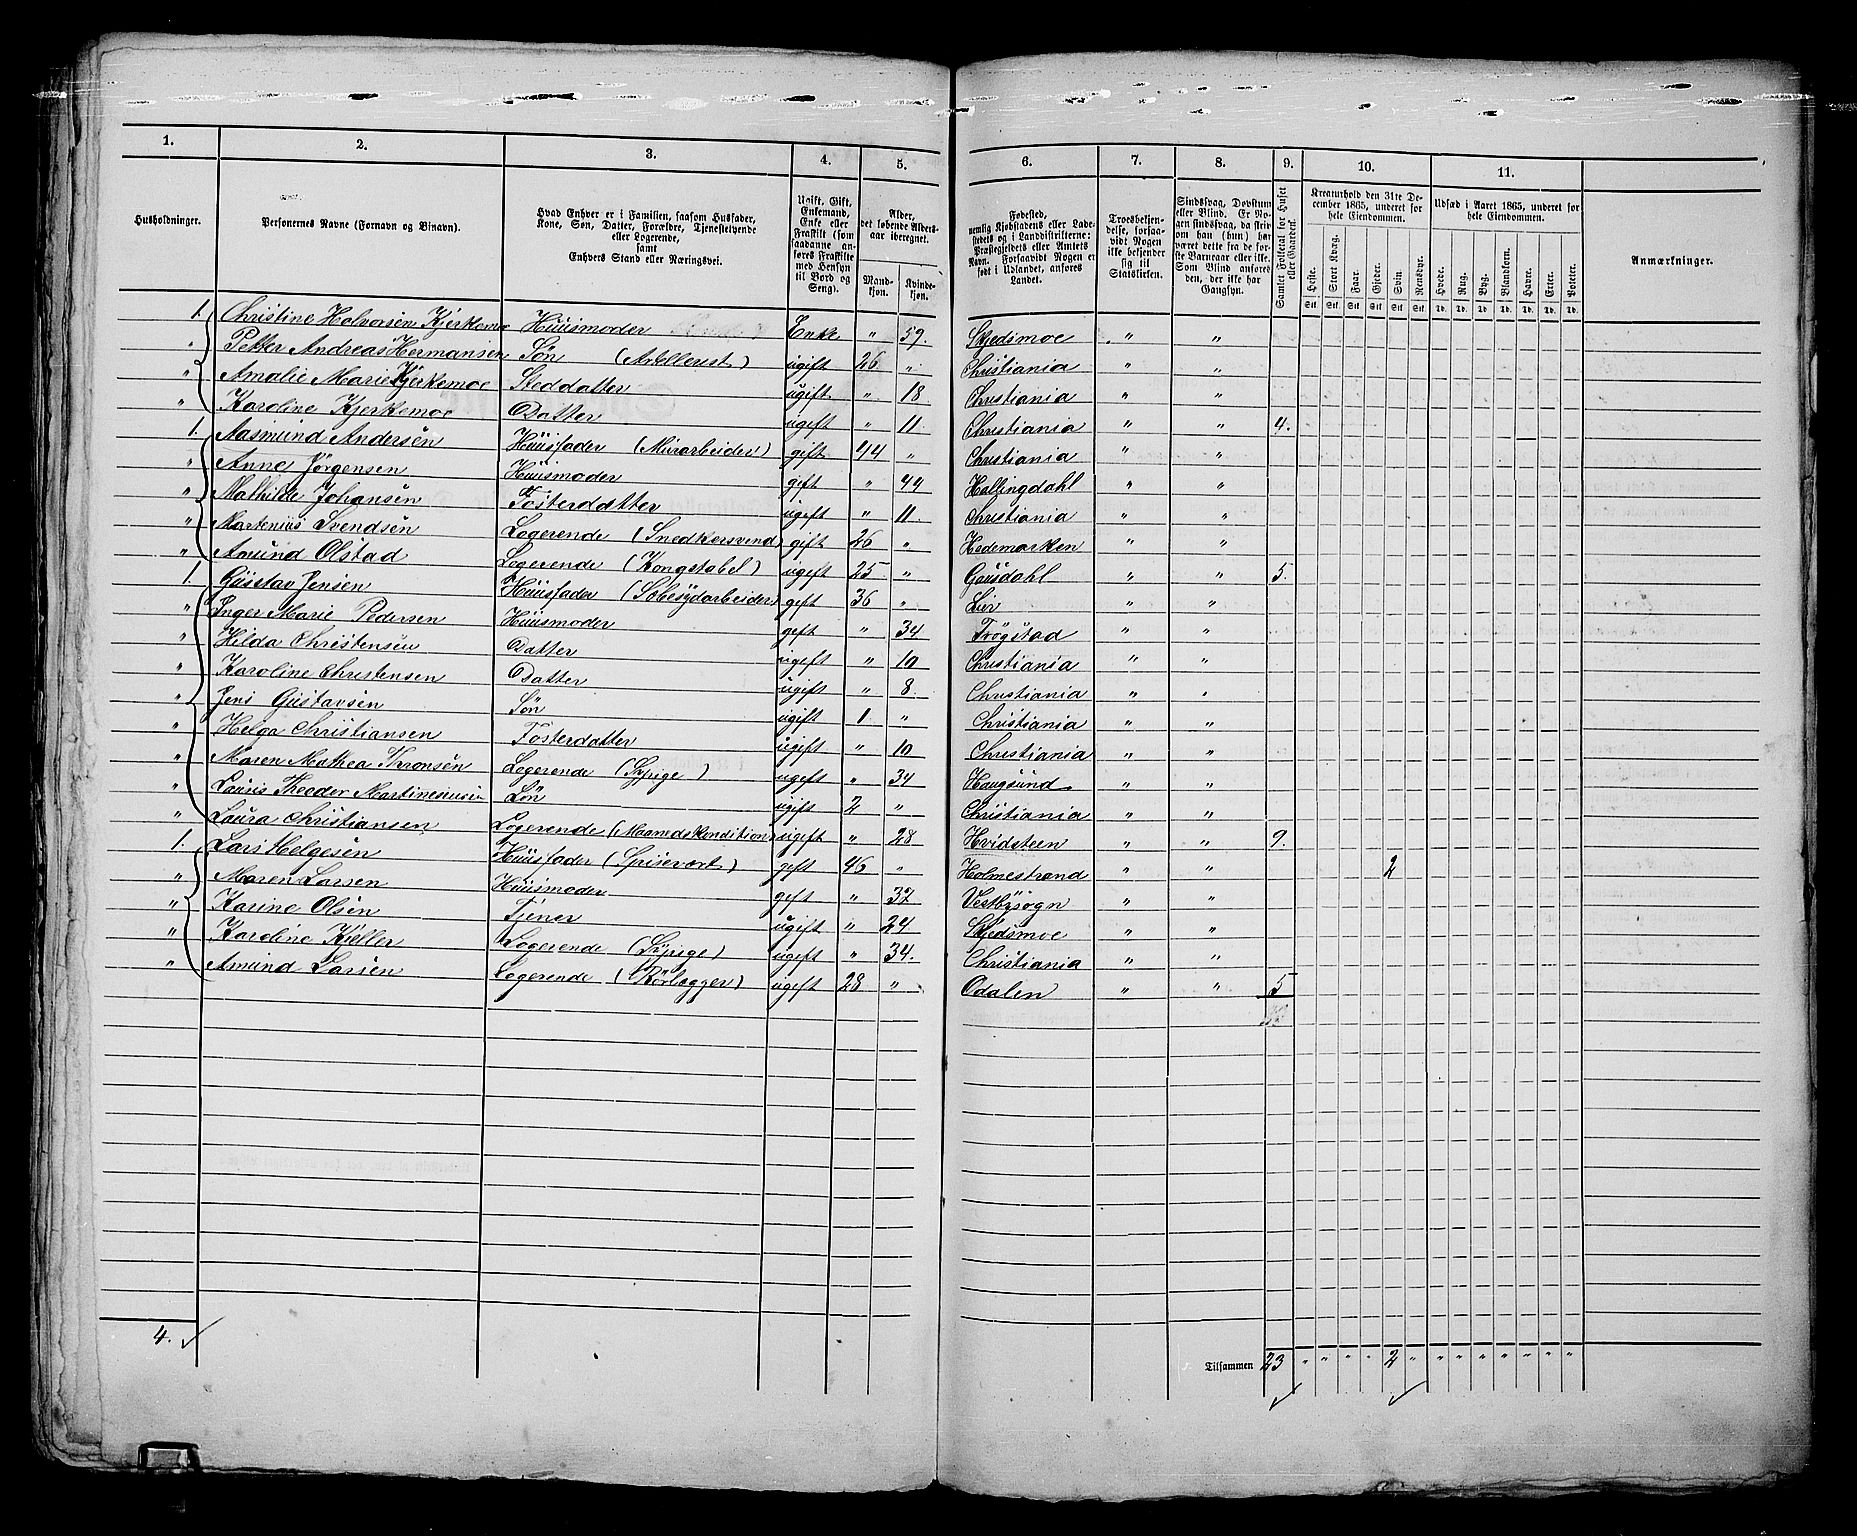 1. 2. 3. 4. 5. 6. 7. 8. 9. 10. 11.
Husholdninger.
Personernes Navne (Fornavn og Binavn).
Hvad Enhver er i Familien, saasom Husfader,
Kone, Søn, Datter, Forældre, Tjenestetyende
eller Logerende,
samt
Enhvers Stand eller Næringsvei.
Ugift, Gift,
Enkemand,
Enke eller
Fraskilt (som
saadanne an-
føres Fraskilte
med Hensyn
til Bord og
Seng).
Alder,
det løbende Alders-
aar iberegnet.
Mand-
kjøn.
Kvinde-
kjøn.
Fødested,
nemlig Kjøbstadens eller Lade-
stedets og i Landdistrikterne:
Præstegjeldets eller Amtets
Navn. Forsaavidt Nogen er
født i Udlandet, anføres
Landet.
Troesbekjen-
delse, forsaa-
vidt Nogen
ikke bekjender
sig til
Statskirken.
Sindssvag, Døvstum
eller Blind. Er No-
gen sindssvag, da skriv
om han (hun) har
været dette fra de før-
ste Barneaar eller ikke.
Som Blind anføres
den, der ikke har
Gangsyn.
Samlet Folketal for Huset
eller Gaarden.
Kreaturhold den 31te De-
cember 1865, underet for
hele Eiendommen.
Heste. Stort Kvæg. Faar. Gjeder. Svin. Rensdyr.
Stk. Stk. Stk. Stk. Stk. Stk.
Udsæd i Aaret 1865, underet for
hele Eiendommen.
Hvede. Rug. Byg. Blandkorn. Havre. Erter. Poteter.
Td. Td. Td. Td. Td. Td. Td.
Anmærkninger.
1. Christine Halvorsen Kjerkemoe Huusmoder Enke " 59. Skjedsmoe " "
" Petter Andreas Hermansen Søn (Artillerist) ugift 26 " Christiania " "
" Amalie Marie Kjerkemoe Steddatter ugift " 18 Christiania " "
" Karoline Kjerkemoe Datter ugift " 11. Christiania " " 4.
1. Aasmund Andersen Huusfader (Murarbeider) gift 44 " Christiania " "
" Anne Jørgensen Huusmoder gift " 44 Hallingdahl " "
" Mathilde Johansen Fosterdatter ugift " 11. Christiania " "
" Martenius Svendsen Logerende (Snedkersvend) gift 26 " Hedemarken " "
" Amund Olstad Logerende (Kongstabel) ugift 25 " Gausdahl " " 5.
1. Gustav Jensen Huusfader gift 36 " Lier " "
" Inger Marie Pedersen Huusmoder gift " 34 Trøgstad " "
" Hilda Christensen Datter ugift " 10 Christiania " "
" Karoline Christensen Datter ugift " 8. Christiania " "
" Jens Gustavsen Søn ugift 1 " Christiania " "
" Helga Christiansen Fosterdatter ugift " 10 Christiania " "
" Maren Mathea Thronsen Logerende (Sypige) ugift " 34 Haugsund " "
" Lauris Theodor Søn ugift 2 " Christiania " "
" Laura Christiansen Logerende (Maanedskondition) ugift " 28 Hvidsteen " " 9.
1. Lars Helgesen Huusfader (Spisevært) gift 46 " Holmestrand " " 2
" Maren Larsen Huusmoder gift " 32 Vestbysogn " "
" Karine Olsen Tjener ugift " 24 Skjedsmoe " "
" Karoline Kieller Logerende (Sypige) ugift " 34. Christiania " "
" Amund Larsen Logerende (Rørlægger) ugift 28 " Odalen " " 5
4. ✓
Tilsammen 23 " " " " 2 " " " " " " " "
✓ ✓